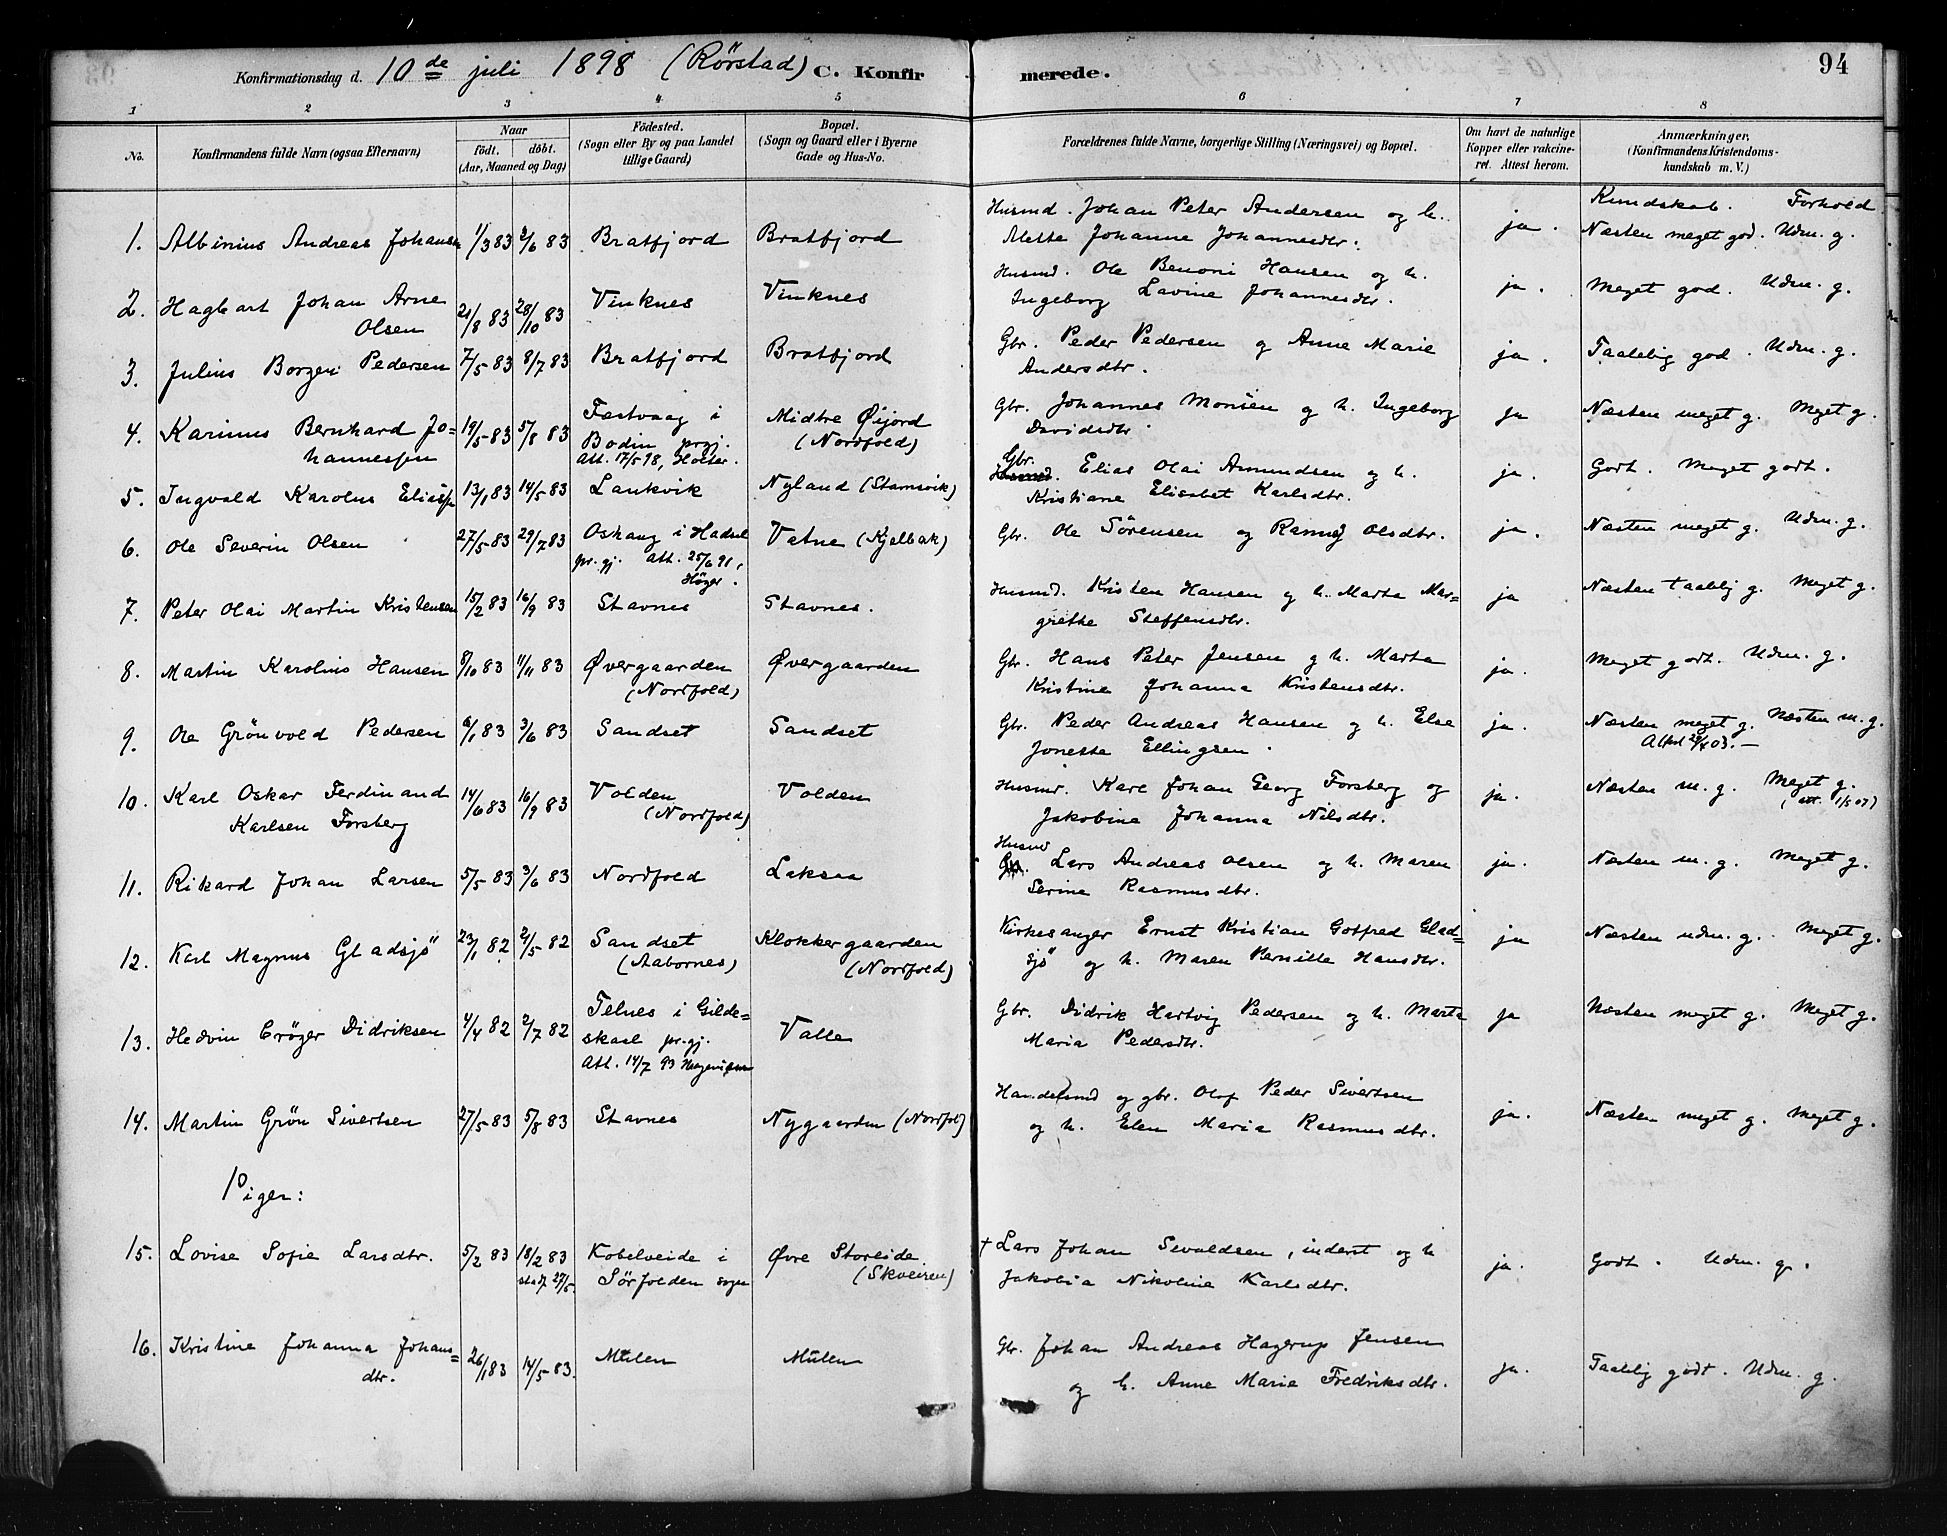 94
Konfirmationsdag d. 10de juli 1898 (Rörstad) C. Konfirmerede.
1 2 3 4 5 6 7 8
No. Konfirmandens fulde Navn (ogsaa Efternavn) Naar födt. döbt. (Aar, Maaned og Dag) Födested. (Sogn eller By og paa Landet tillige Gaard) Bopæl. (Sogn og Gaard eller i Byerne Gade og Hus-No. Forældrenes fulde Navne, borgerlige Stilling (Næringsvei) og Bopæl. Om havt de naturlige Kopper eller vakcineret. Attest herom. Anmærkninger. (Konfirmandens Kristendomskundskab m. V.)
Kundskab. Forhold
1. Albinius Andreas Johansen 1/3 83 3/6 83 Bratfjord Bratfjord Husmd. Johan Peter Andersen og h. Mette Johanne Johannesdtr. ja. Næsten meget god. Udm. g.
2. Hagbart Johan Arne Olsen 21/8 83 28/10 83 Vinknes Vinknes Husmd. Ole Benoni Hansen og h. Ingeborg Lavine Johannesdtr. ja. Meget god. Udm. g.
3. Julius Borgen Pedersen 7/5 83 8/7 83 Bratfjord Bratfjord Gbr. Peder Pedersen og Anne Marie Andersdtr. ja. Taalelig god. Udm. g.
4. Karinus Bernhard Johannessen 19/5 83 5/8 83 Festvaag i Bodin prgj. Att. 17/5 98, Holter. Midtre Øijord (Nordfold) Gbr. Johannes Monsen og h. Ingeborg Davidsdtr. ja Næsten meget g. Meget g.
5. Ingvald Karolus Eliassen 13/1 83 14/5 83 Lankvik Nyland (Stamsvik) Gbr. Husmd. Elias Olai Amundsen og h. Kristiane Elisabet Karlsdtr. ja. Godt. Meget godt.
6. Ole Severin Olsen 27/5 83 29/7 83 Oshaug i Hadsel pr.gj. att. 25/6 91, Höyer. Vatne (Kjelbak) Gbr. Ole Sörensen og Ranneg Olsdtr. ja. Næsten meget g. Udm. g.
7. Peter Olai Martin Kristensen 15/2 83 16/9 83 Stavnes Stavnes. Husmd. Kristen Hansen og h. Marta Margrethe Steffensdtr. ja Næsten taalelig g. Meget g.
8. Martin Karolius Hansen 8/10 83 11/11 83 Øvergaarden (Nordfold) Øvergaarden Gbr. Hans Peter Jensen og h. Marta Kristine Johanna Kristensdtr. ja. Meget godt. Udm. g.
9. Ole Grönvold Pedersen 6/1 83 3/6 83 Sandset Sandset Gbr. Peder Andreas Hansen og h. Else Jonetta Ellingsen. ja. Næsten meget g. Næsten m. g.
10. Karl Oskar Ferdinand Karlsen Forsberg 14/6 83 16/9 83 Volden (Nordfold) Volden Husmd. Karl Johan Georg Forsberg og Jakobine Johanna Nilsdtr. ja. Næsten m. g. Meget g. (att. 1/5 07)
11. Rikard Johan Larsen 5/5 83 3/6 83 Nordfold Laksaa Husmd Lars Andreas Olsen og h. Maren Serine Rasmusdtr. ja. Næsten m. g. Meget g.
12. Karl Magnus Gladsjö 23/1 82 2/5 82 Sandset (Aabornes) Klokkergaarden (Nordfold) Kirkesanger Ernst Kristian Gotfred Gladsjö og h. Maren Pernille Hansdtr. ja Næsten udm. g. Meget g.
13. Hedvin Cröger Didriksen 4/4 82 2/7 82 Telnes i Gildeskaal pr.gj. Att. 14/7 93 Valle Gbr. Didrik Hartvig Pedersen og h. Marta Maria Pedersdtr. ja Næsten meget g. Meget g.
14. Martin Grön Sivertsen 27/5 83 5/8 83 Stavnes Nygaarden (Nordfol) Handelsmd og gbr. Olof Peder Sivertsen og h. Elen Maria Rasmusdtr. ja. Næsten meget g. Meget g.
Piger:
15. Lovise Sofie Larsdtr. 5/2 83 18/2 83 stadf 27/5. Kobelveide i Sörfolden sogn Øvre Storeide (Skveiren) + Lars Johan Sivaldsen, inderst og h Jakobia Nikoline Karlsdtr. ja. Godt. Udm. g.
16. Kristine Johanna Johansdtr. 26/1 83 14/5 83. Mulen Mulen Gbr. Johan Andreas Hagerup Jensen og h. Anne Marie Fredriksdtr. ja. Taalelig godt. Udm. g.